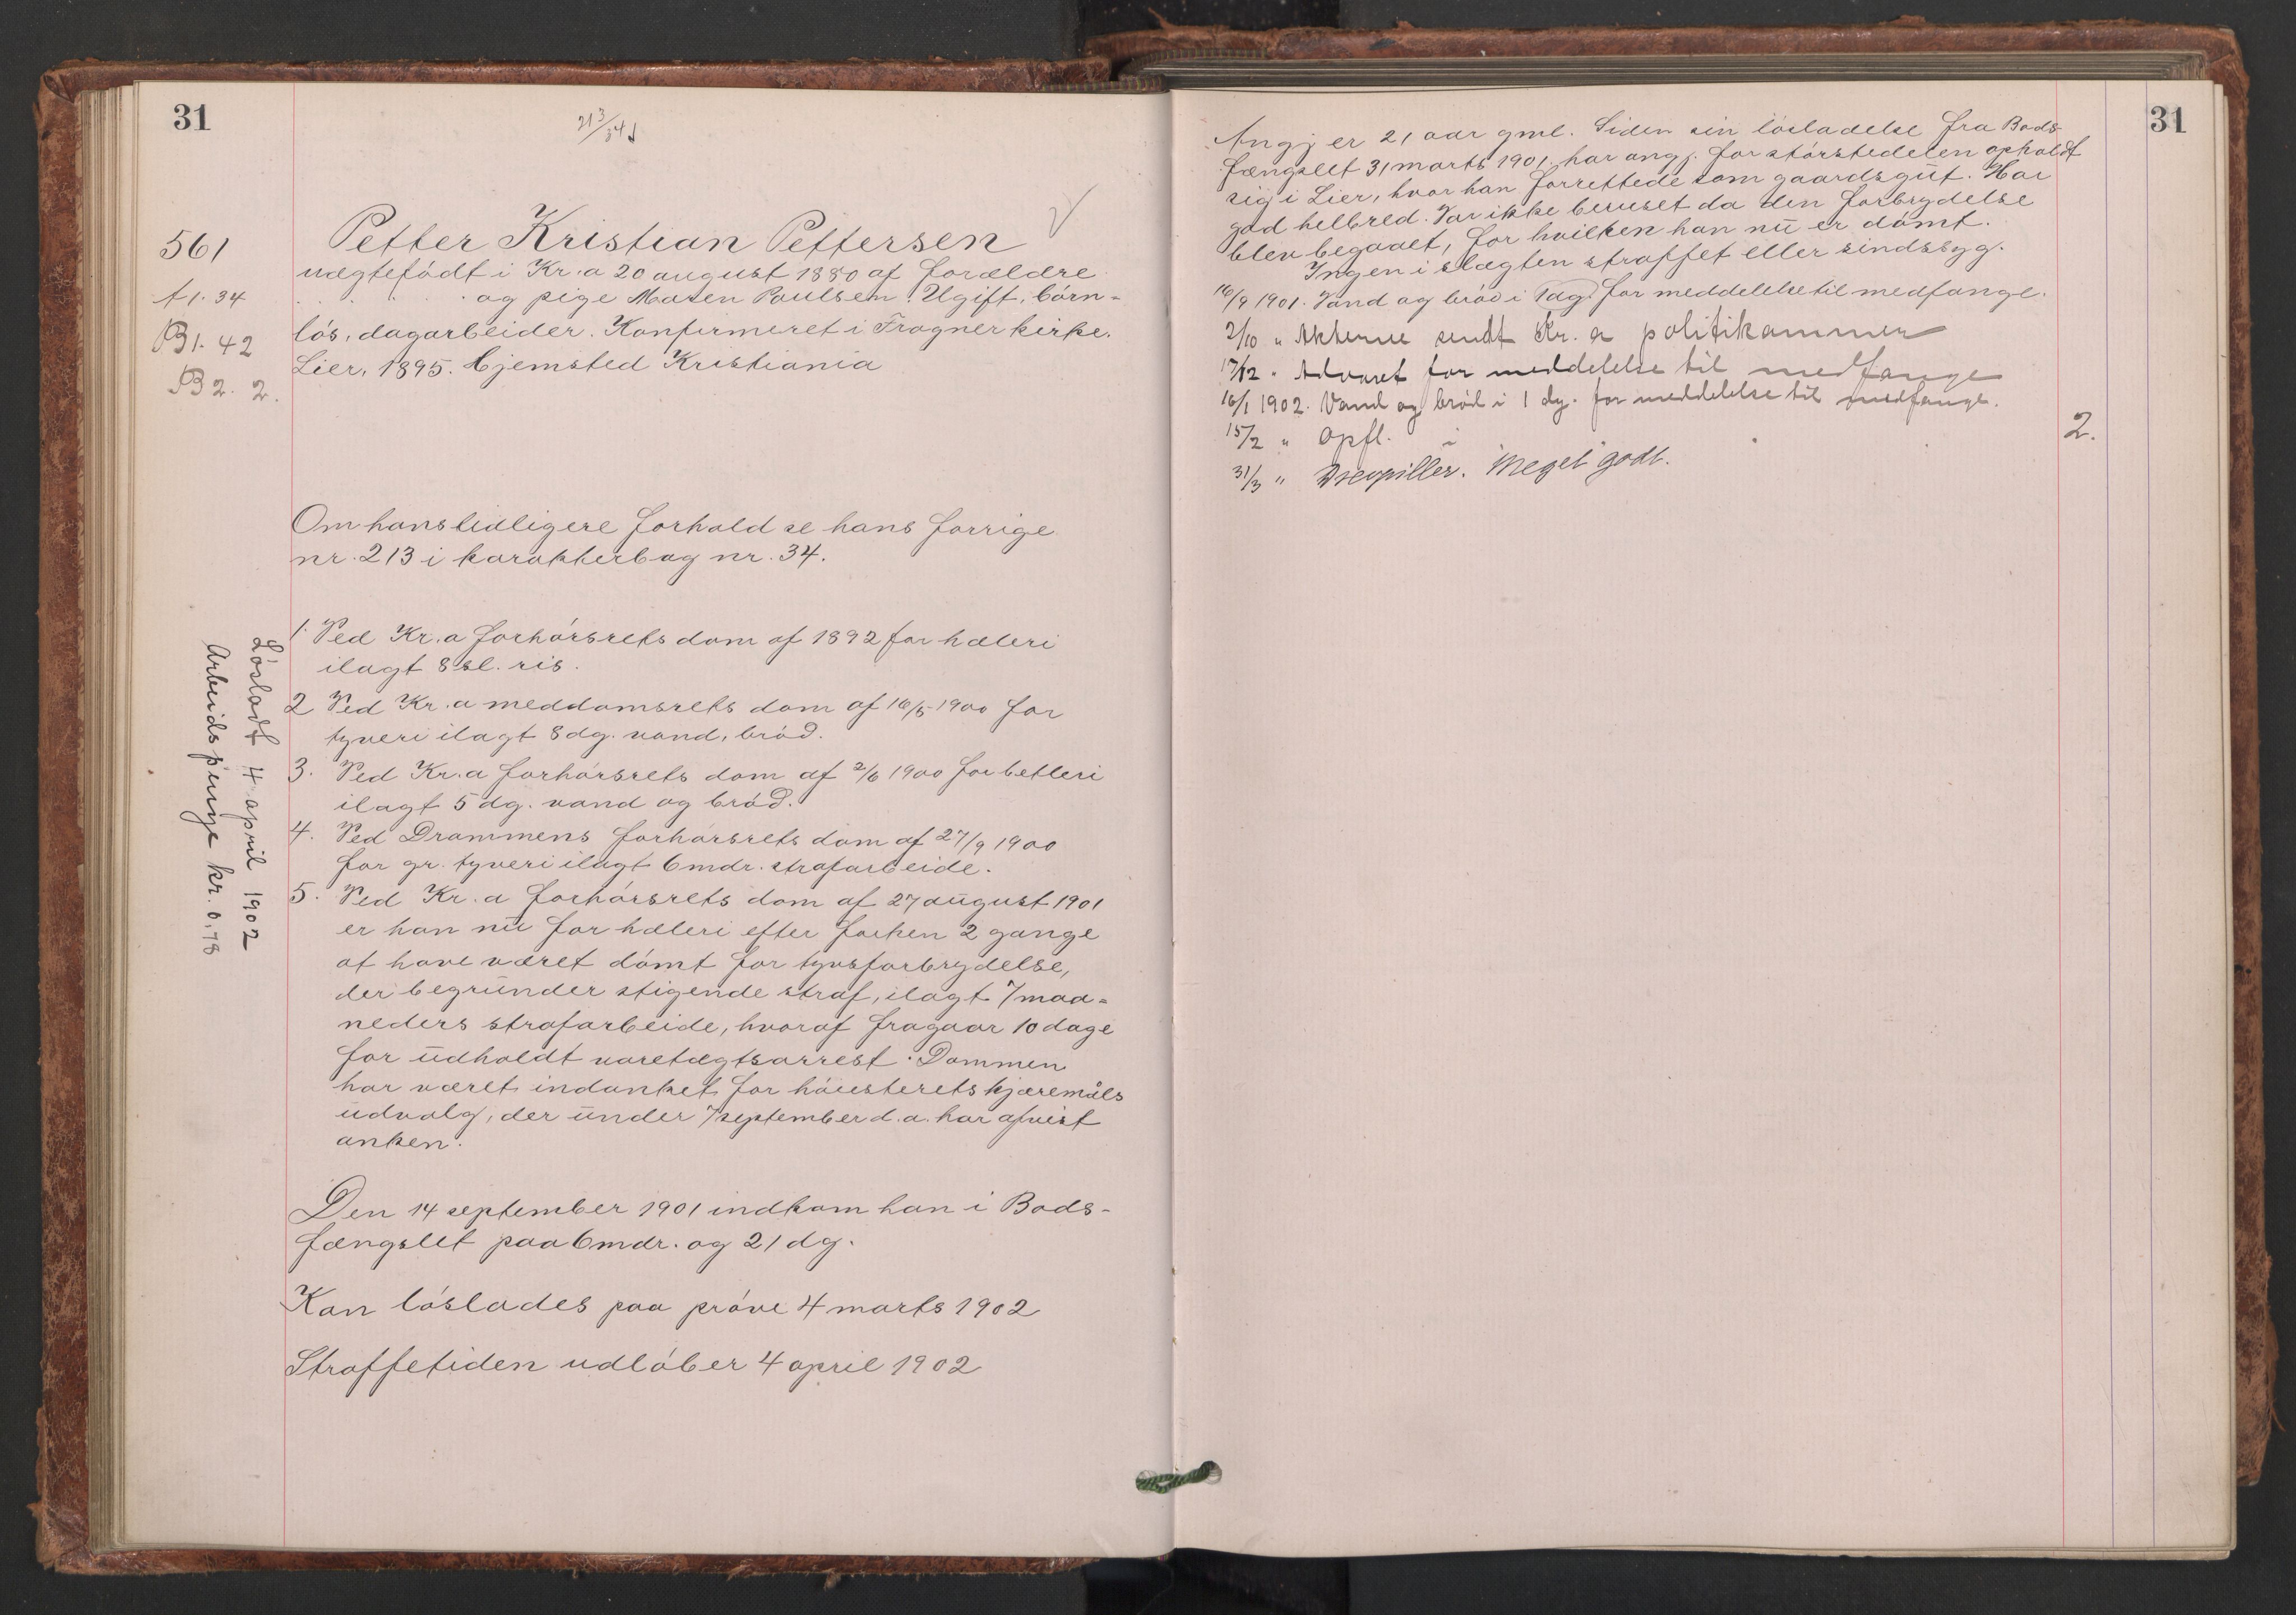 31
213/34
561
A 1. 34
B 1. 42
B 2. 2.
Petter Kristian Pettersen
uægtefödt i Kr.a 20 august 1880 af forældre
. . . . . og pige Maren Paulsen. Ugift, börn-
lös, dagarbeider. Konfirmeret i Frogner kirke.
Lier, 1895. Hjemsted Kristiania
Om hans tidligere forhold se hans forrige
nr. 213 i karakterbog nr. 34.
1. Ved Kr.a forhörsrets dom af 1892 for hæleri
ilagt 8 sl. ris.
2 Ved Kr.a meddomsrets dom af 16/5 1900 for
tyveri ilagt 8 dg. vand, bröd.
3. Ved Kr.a forhörsrets dom af 2/6 1900 for betleri
ilagt 5 dg. vand og bröd.
4. Ved Drammens forhörsrets dom af 27/9 1900
for gr. tyveri ilagt 6 mdr. strafarbeide.
5. Ved Kr.a forhörsrets dom af 27 august 1901
er han nu for hæleri efter forhen 2 gange
at have været dömt for tyvsforbrydelse,
der begrunder stigende straf, ilagt 7 maa-
neders strafarbeide, hvoraf fragaar 10 dage
for udholdt varetægtsarrest. Dommen
har været indanket for höiesterets kjæremåls
udvalg, der under 7 september d.a. har afvist
anken.
Den 14 september 1901 indkom han i Bods-
fængslet paa 6 mdr. og 21 dg.
Kan löslades paa pröve 4 marts 1902
Straffetiden udlöber 4 april 1902
Lösladt 4 april 1902
Arbeidspenge kr. 0,78
31
Angj er 21 aar gml. Siden sin lösladelse fra Bods-
fængslet 31 marts 1901 har angj. for störstedelen opholdt
sig i Lier, hvor han forrettede som gaardsgut. Har
god helbred. Var ikke beruset da den forbrydelse
blev begaaet, for hvilken han nu er dömt.
Ingen i slægten straffet eller sindssyg.
16/9 1901. Vand og bröd i 1 dag for meddelelse til medfange.
2/10 " Akterne sendt Kr.a politikammer
17/12 " Advaret for meddelelse til medfange
16/1 1902. Vand og bröd i 1 dg. for meddelelse til medfange.
15/2 " Opfl. i
2.
31/3 " Meget godt.